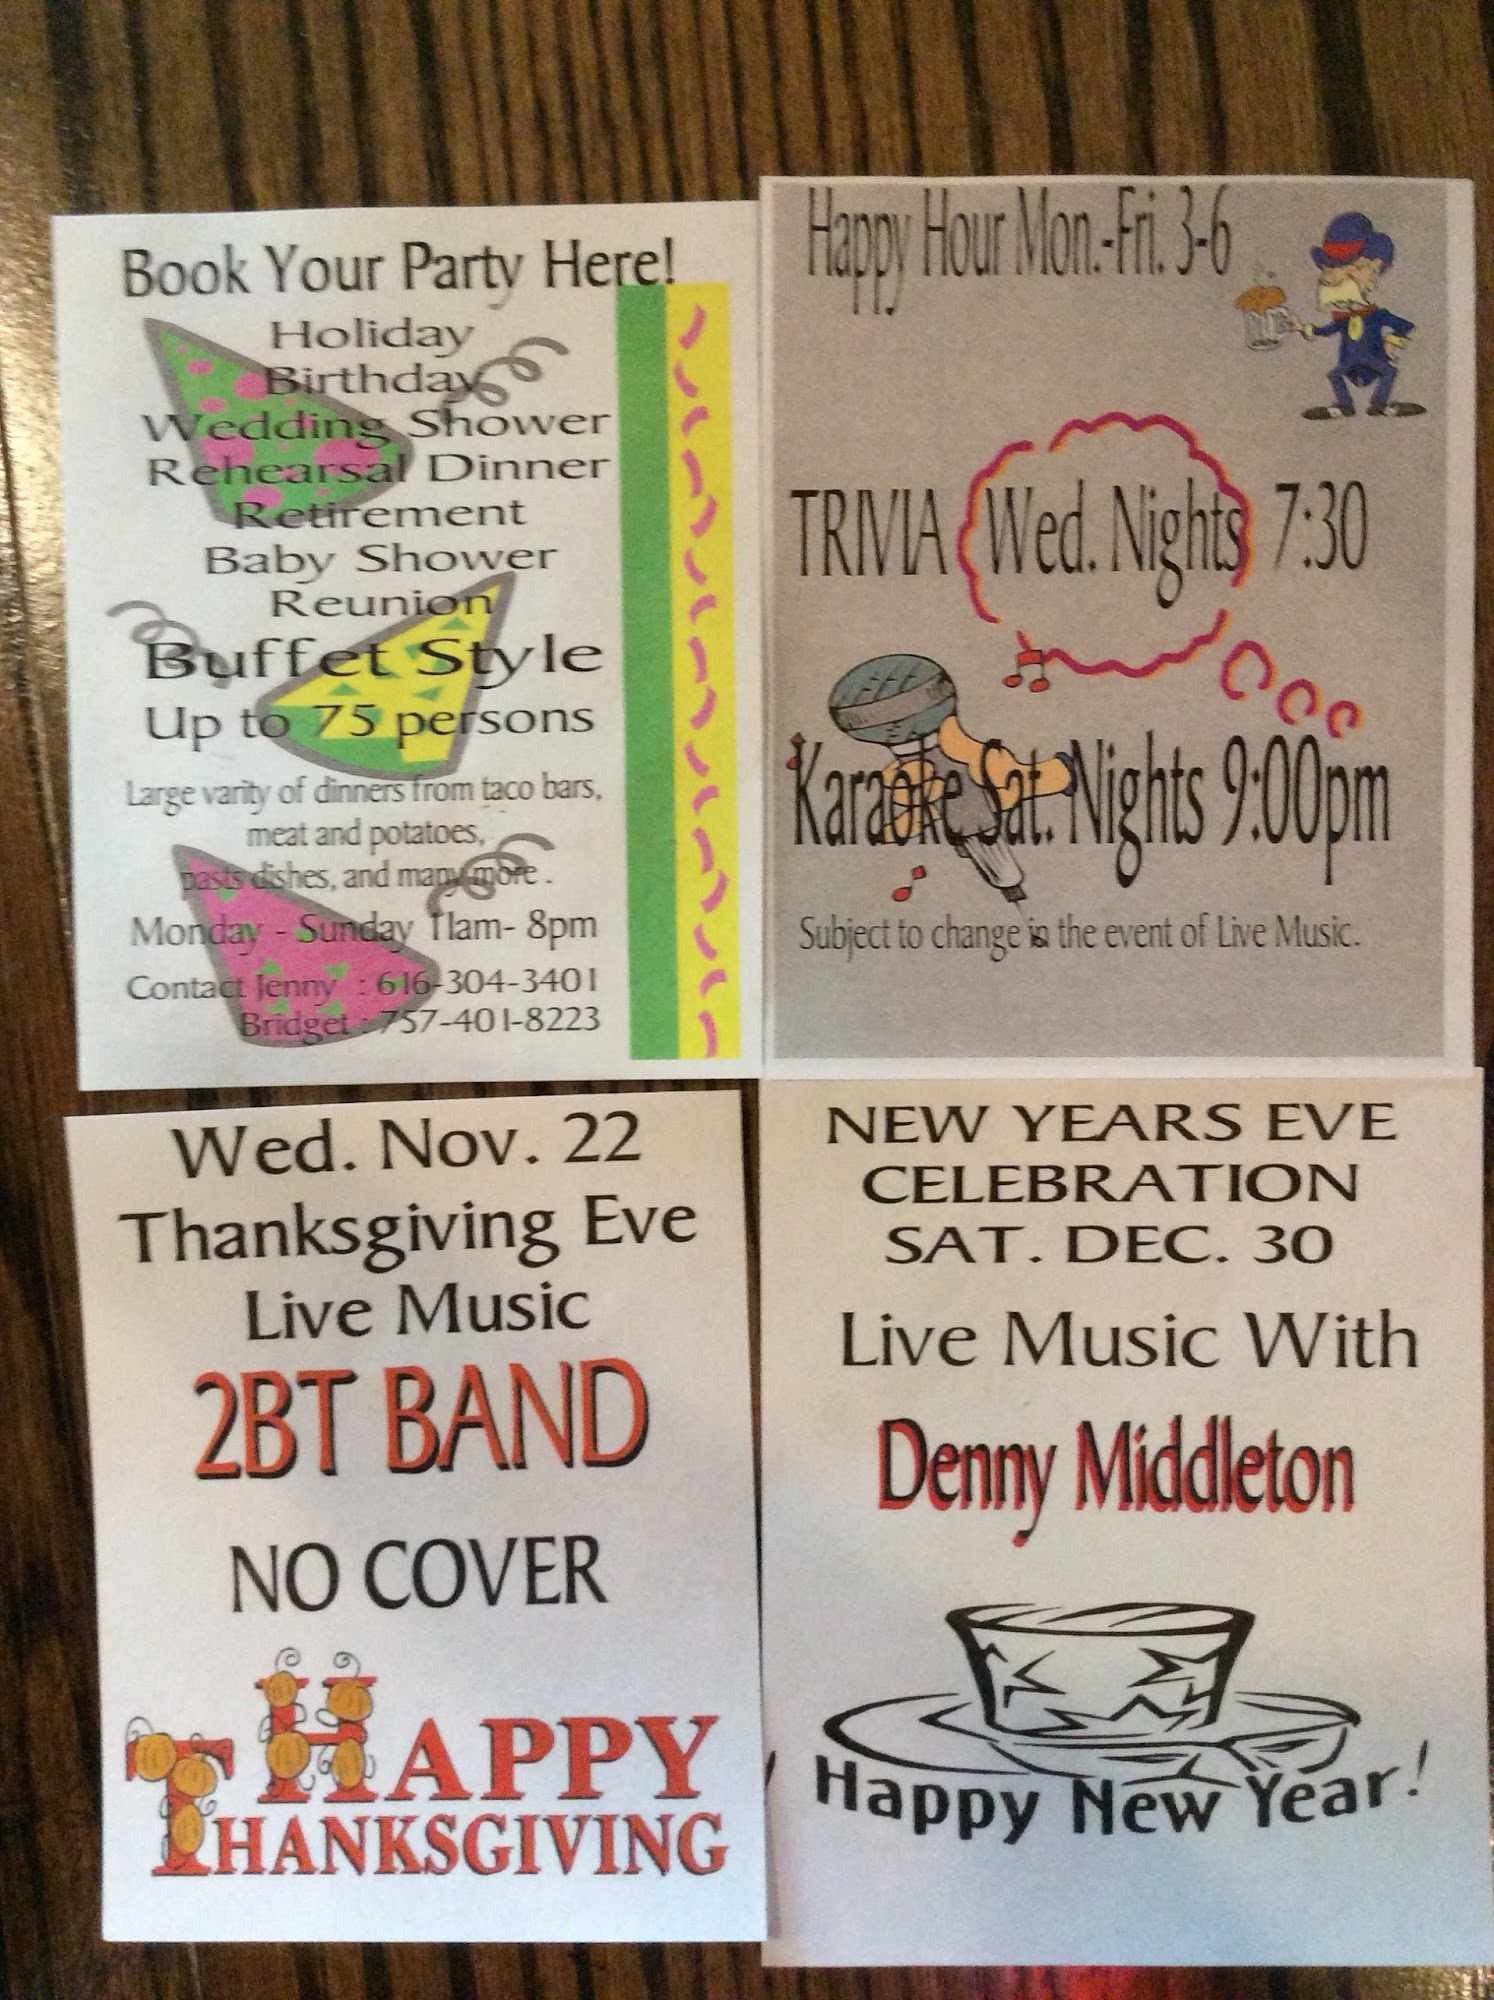 Book Your Party Here!
Holiday
Birthday
Wedding Shower
Rehearsal Dinner
Retirement
Baby Shower
Reunion
Buffet Style
Up to 75 persons
Large varity of dinners from taco bars,
meat and potatoes,
pasts dishes, and many more .
Monday - Sunday 11am- 8pm
Contact Jenny : 616-304-3401
Bridget : 757-401-8223
Happy Hour Mon.-Fri. 3-6
TRIVIA Wed. Nights 7:30
Karaoke Sat. Nights 9:00pm
Subject to change in the event of Live Music.
Wed. Nov. 22
Thanksgiving Eve
Live Music
2BT BAND
NO COVER
HAPPY
THANKSGIVING
NEW YEARS EVE
CELEBRATION
SAT. DEC. 30
Live Music With
Denny Middleton
Happy New Year!